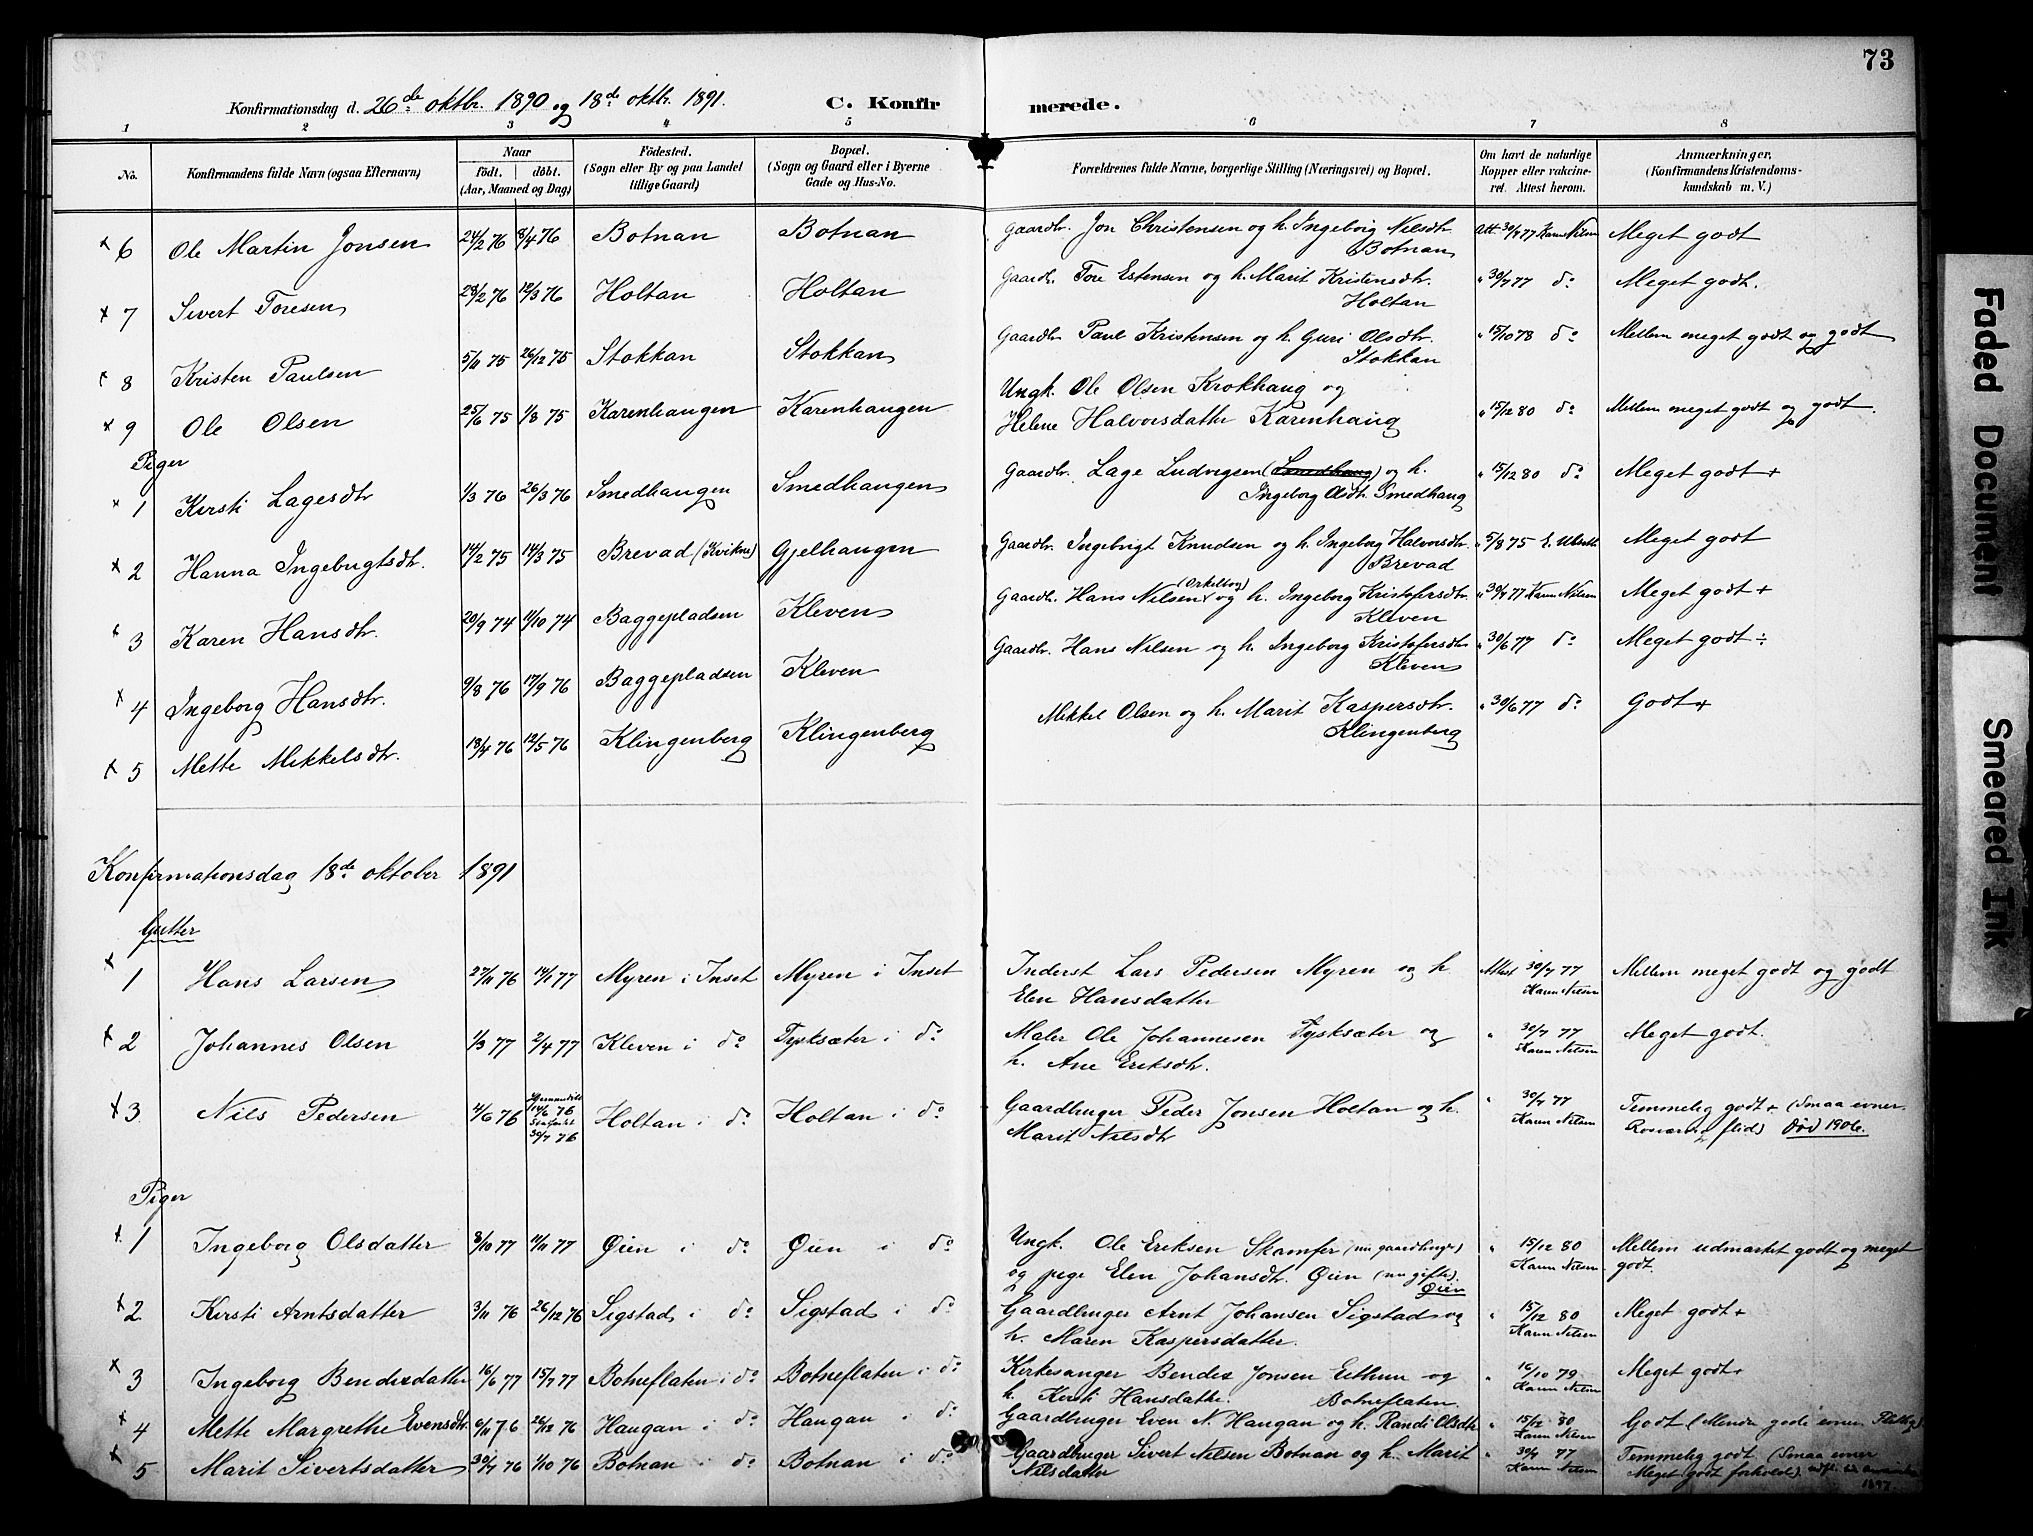 73
Konfirmationsdag d. 26de oktbr. 1890 og 18de oktbr. 1891.
C. Konfir merede.
1 2 3 4 5 6 7 8
No. Konfirmandens fulde Navn (ogsaa Efternavn) Naar födt. döbt. (Aar, Maaned og Dag) Födested. (Sogn eller By og paa Landet tillige Gaard) Bopæl. (Sogn og Gaard eller i Byerne Gade og Hus-No. Forældrenes fulde Navne, borgerlige Stilling (Næringsvei) og Bopæl. Om havt de naturlige Kopper eller vakcineret. Attest herom. Anmærkninger. (Konfirmandens Kristendomskundskab m. V.)
x 6 Ole Martin Jonsen 24/2 76 8/4 76 Botnan Botnan Gaardbr. Jon Christensen og h. Ingeborg Nilsdtr. Botnan Att. 30/7 77 Karen Nilsen Meget godt
x 7 Sivert Toresen 28/2 76 12/3 76 Holtan Holtan Gaardb. Tore Estensen og h. Marit Kristensdtr. Holtan " 30/7 77 do Meget godt.
x 8 Kristen Paulsen 5/11 75 26/12 75 Stokkan Stokkan Gaardbr Paul Kristensen og h. Guri Olsdtr. Stokkan " 15/10 78 do Mellem meget godt og godt
x 9 Ole Olsen 25/6 75 1/8 75 Karenhaugen Karenhaugen Ungk. Ole Olsen Krokhaug og Helene Halvorsdatter Karenhaug " 15/12 80 do Mellem meget godt og godt.
Piger
x 1 Kirsti Lagesdtr 1/3 76 26/3 76 Smedhaugen Smedhaugen Gaardbr. Lage Ludvigsen (Smedhaug) og h. Ingeborg Olsdtr. Smedhaug " 15/12 80 do Meget godt +
x 2 Hanna Ingebrigtsdtr. 14/2 75 14/3 75 Brevad (Kvikne) Gjelhaugen Gaardbr. Ingebrigt Knudsen og h. Ingeborg Halvorsdtr. Brevad " 5/8 75 Meget godt
x 3 Karen Hansdtr. 20/9 74 11/10 74 Baggepladsen Kleven Gaardbr. Hans Nilsen (Orkelbog) og h. Ingeborg Kristofersdtr. Kleven " 30/7 77 Karen Nilsen Meget godt +
x 4 Ingeborg Hansdtr. 9/8 76 17/9 76 Baggepladsen Kleven Gaardbr. Hans Nilsen og h. Ingeborg Kristofersdtr Kleven " 30/6 77 do Meget godt ÷
x 5 Mette Mikkelsdtr. 18/4 76 12/5 76 Klingenberg Klingenberg Mikkel Olsen og h. Marit Kaspersdtr. Klingenberg " 30/6 77 do Godt +
Konfirmationsdag 18de oktober 1891
Gutter
x 1 Hans Larsen 27/11 76 14/1 77 Myren i Inset Myren i Inset Inderst Lars Pedersen Myren og h Elen Hansdatter Attest 30/7 77 Karen Nilsen Mellem meget godt og godt
x 2 Johannes Olsen 1/3 77 2/4 77 Kleven i do Tysksæter i do Maler Ole Johannesen Tysksæter og h. Ane Eriksdtr. " 30/7 77 Karen Nilsen Meget godt.
x 3 Nils Pedersen 4/6 76 Hjemmedøbt 14/6 76 30/7 76 Holtan i do Holtan i do Gaardbruger Peder Jonsen Holtan og h. Marit Nilsdtr " 30/7 77 Karen Nilsen Temmelig godt + (Smaa evner. Rosværdig flid) Død 1906.
Piger
x 1 Ingeborg Olsdatter 3/10 77 11/11 77 Øien i do Øien i do Ungk. Ole Eriksen Skamfer (nu gaardbruger) og pige Elen Johansdtr. Øien (nu gift). Øien " 15/12 80 Karen Nilsen Mellem udmærket godt og meget godt.
x 2 Kirsti Arntsdatter 3/11 76 26/12 76 Sigstad i do Sigstad i do Gaardbruger Arnt Johansen Sigstad og h. Maren Kaspersdatter. " 15/12 80 Karen Nilsen Meget godt +
x 3 Ingeborg Bendixdatter 16/6 77 15/7 77 Botneflaten i do Botneflaten i do Kirkesanger Bendix Jonsen Eithun og h. Kirsti Hansdatter. Botneflaten " 16/10 79 Karen Nilsen Meget godt +
x 4 Mette Margrethe Evensdtr. 6/11 76 26/12 76 Haugan i do Haugan i do Gaardbruger Even N. Haugan og h. Randi Olsdtr " 15/12 80 Karen Nilsen Godt (Mindre gode evner Flittig)
x 5 Marit Sivertsdatter 30/7 76 1/10 76 Botnan i do Botnan i do Gaardbruger Sivert Nilsen Botnan og h. Marit Nilsdatter " 30/7 77 Karen Nilsen Temmelig godt (Smaa evner Meget godt forhold)
Faded Document
Smeared Ink